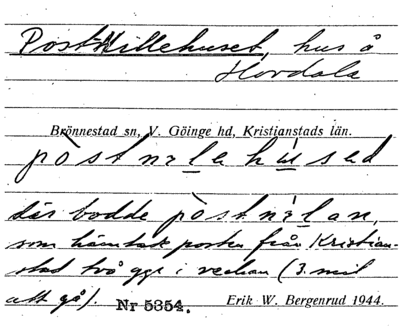 Post-Nillehuset, hus å
Hovdala
Brönnestad sn, V. Göinge hd, Kristianstads län.
pòstnɪlehùsəd
där bodde pòstnìlan,
som hämtade posten från Kristian-
stad två ggr i veckan (3 mil
att gå).
Nr 5354. Erik W. Bergenrud 1944.